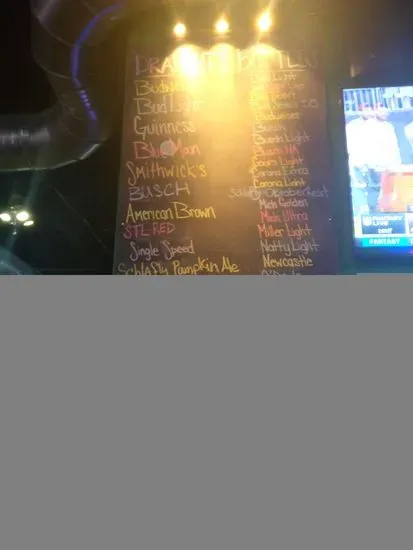 DRAFTS BOTTLES
Budweiser
Bud Light
Guinness
Blue Moon
Smithwick's
BUSCH
American Brown
STL RED
Single Speed
Schlafly Pumpkin Ale
Bud Light
Budweiser
Busch
Busch Light
Busch NA
Coors Light
Corona Extra
Corona Light
Schlafly Oktoberfest
Mich Golden
Mich Ultra
Miller Light
Natty Light
Newcastle
O'Doul's
FANTASY
LIVE
FANTASY